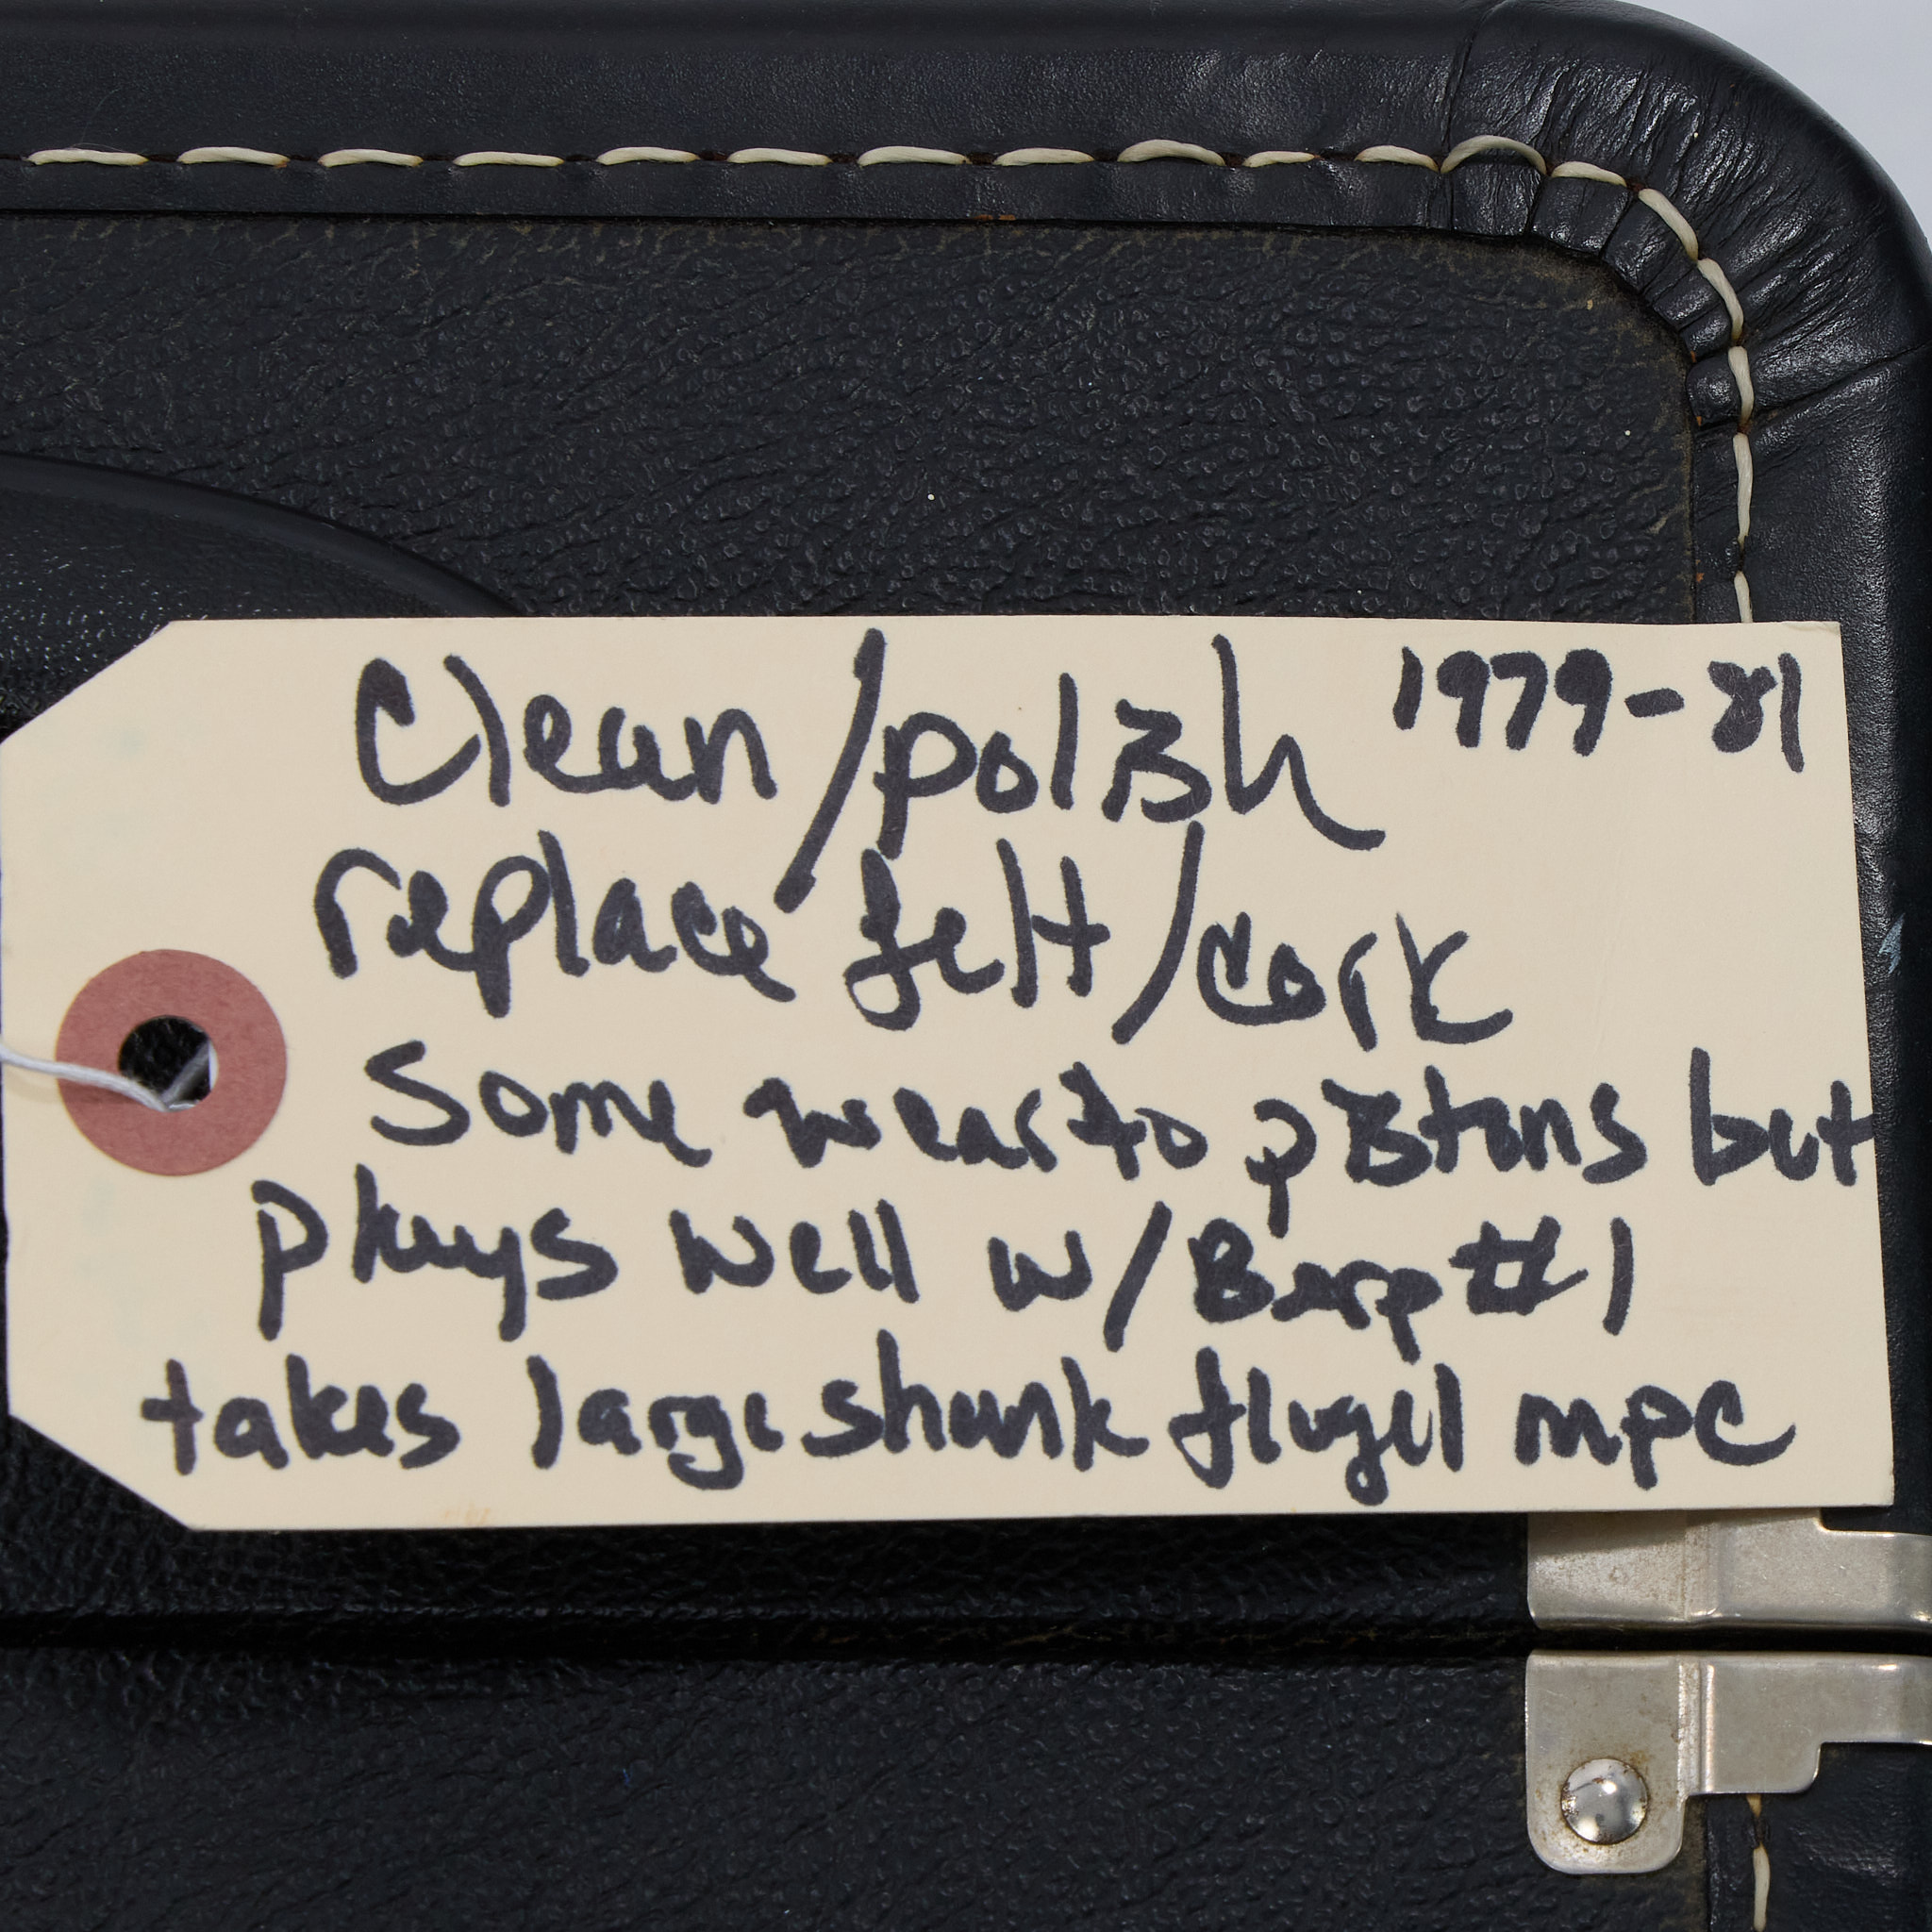 Clean/polish 1979-81
replace felt/cork
Some wear to pistons but
plays well w/Berp #1
takes large shank flugel mpc